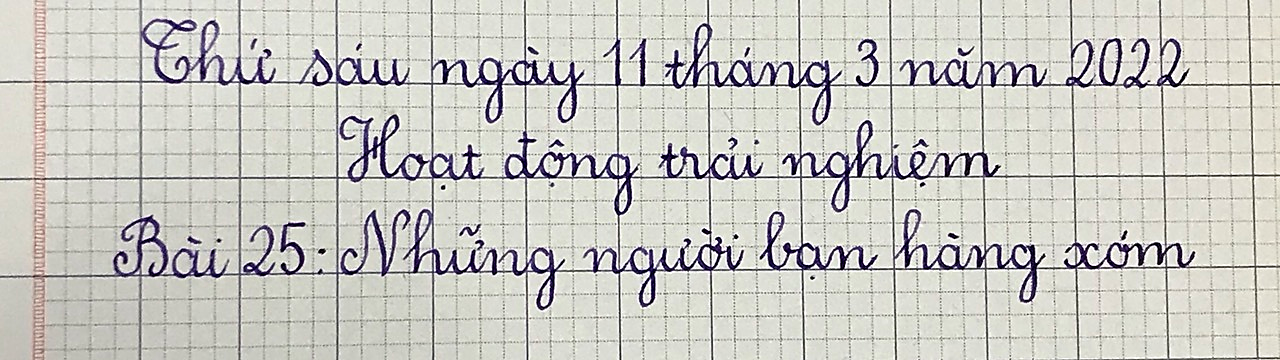 Thứ sáu ngày 11 tháng 3 năm 2022
Hoạt động trải nghiệm
Bài 25: Những người bạn hàng xóm